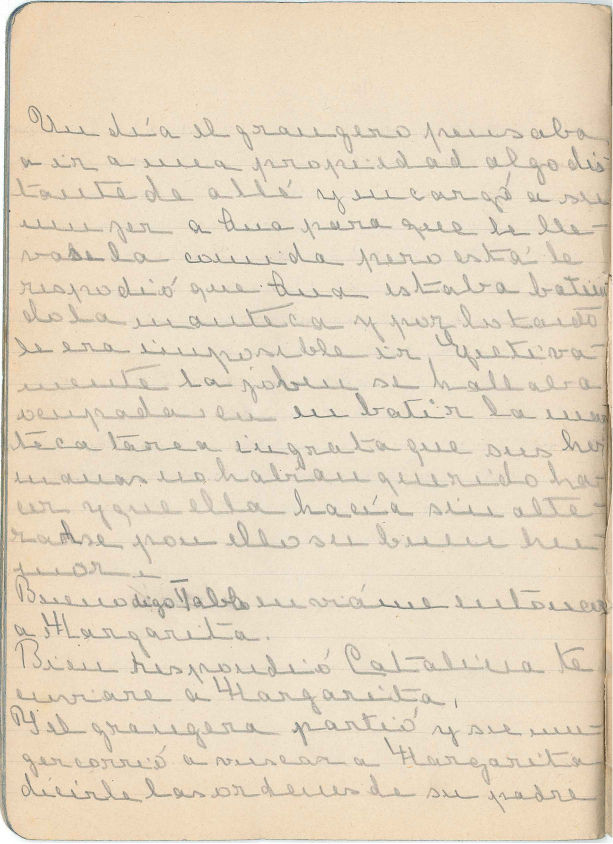 Un día el grangero pensaba
a ir a una propiedad algo dis
tante de allé y encargó a su
mujer a Ana para que le lle-
vase la comida pero está le
respodió que Ana estaba batien
do la manteca y por lo tanto
le era imposible ir. Efetiva-
mente la joben se hallaba
ocupada en en batir la man
teca tarea ingrata que sus her
manas no habían querido ha-
cer y que ella hacía sin alte-
rarse pou ello su buen hu-
mor.-
Bueno dijo Pablo enviáme entonces
a Margarita.
Bien respondió Catalina te
enviare a Margarita,
Y el grangera partió y su mu-
ger corrió a vuscar a Margarita
dicirle las ordenes de su padre